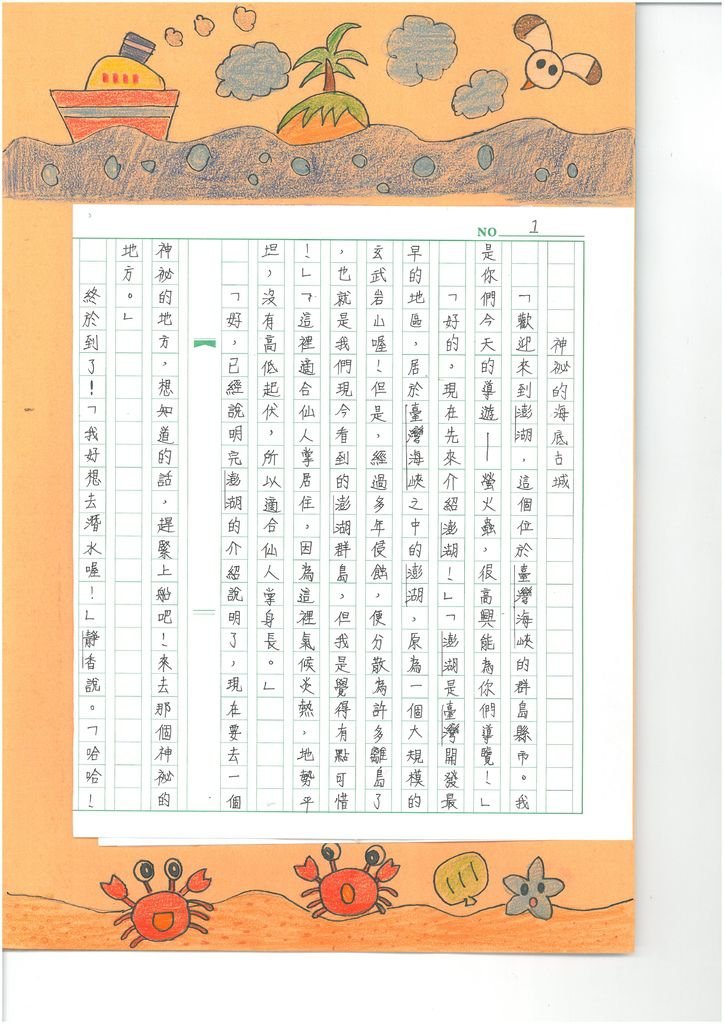 NO 1
神祕的海底古城
「歡迎來到澎湖，這個位於臺灣海峽的群島縣市。我
是你們今天的導遊——螢火蟲，很高興能為你們導覽！」
「好的，現在先來介紹澎湖！」「澎湖是臺灣開發最
早的地區，居於臺灣海峽之中的澎湖，原為一個大規模的
玄武岩山喔！但是，經過多年侵蝕，便分散為許多離島了
，也就是我們現今看到的澎湖群島，但我是覺得有點可惜
！」「這裡適合仙人掌居住，因為這裡氣候炎熱，地勢平
坦，沒有高低起伏，所以適合仙人掌身長。」
「好，已經說明完澎湖的介紹說明了，現在要去一個
神祕的地方，想知道的話，趕緊上船吧！來去那個神祕的
地方。」
終於到了！「我好想去潛水喔！」靜香說。「哈哈！